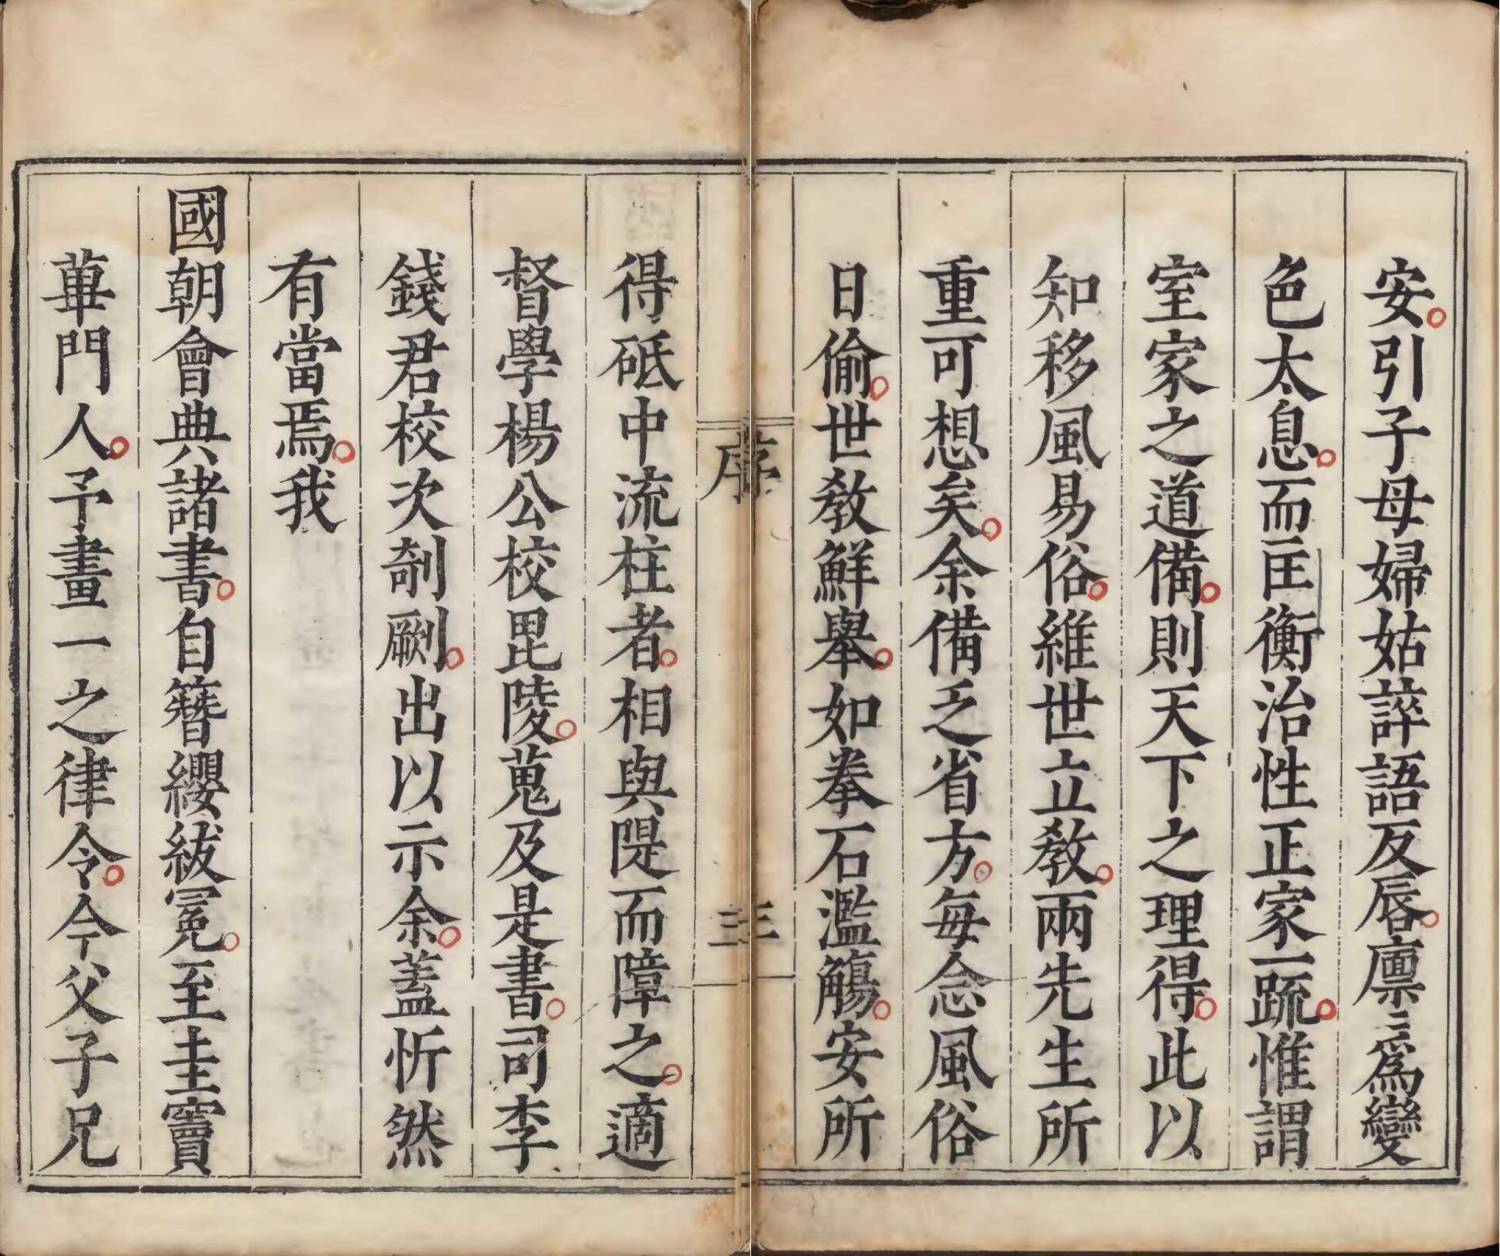 安引子母婦姑誶語反唇廪〻爲變
色太息而匡衡治性正家一疏惟謂
室家之道備則天下之理得此以
知移風易俗維世立敎兩先生所
重可想矣余備乏省方每念風俗
日偷世敎鮮舉如拳石濫觴安所
序
三
得砥中流柱者相與隄而障之適
督學楊公校毘陵蒐及是書司李
錢君校次剞劂出以示余蓋忻然
有當焉我
國朝會典諸書自簪纓紱冕至圭竇
蓽門人予畫一之律令今父子兄